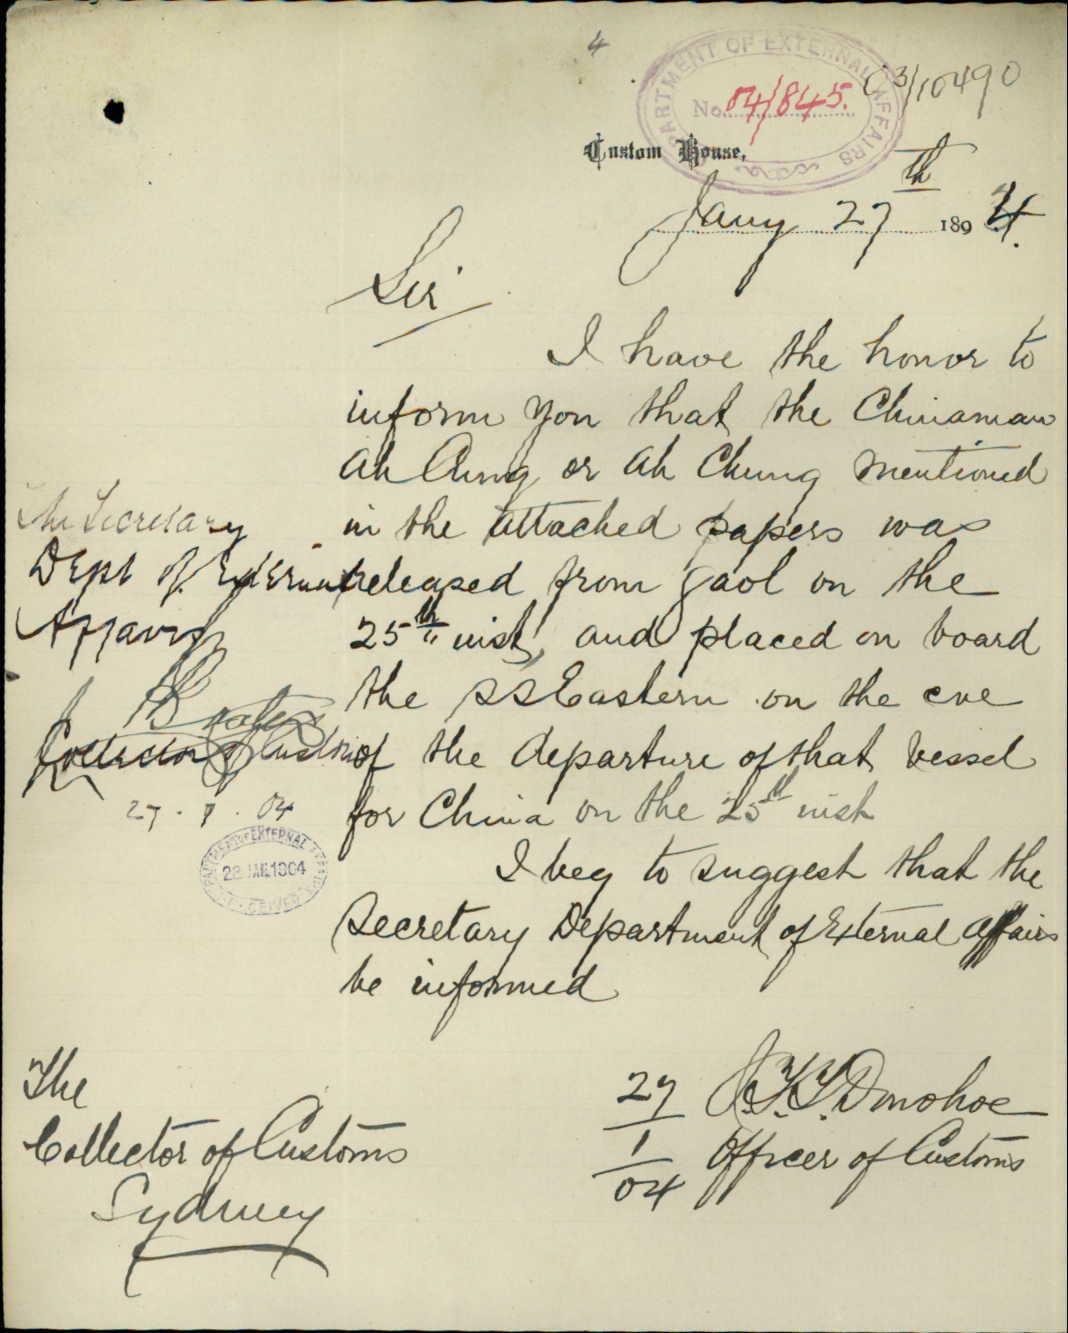 4
DEPARTMENT OF EXTERNAL AFFAIRS
No. 04/845.
03/10490
Custom House,
Jany 27th 1894.
Sir
I have the honor to
inform you that the Chinaman
Ah Chung or Ah Chung mentioned
in the attached papers was
released from gaol on the
25th inst, and placed on board
the SS Eastern on the eve
of the departure of that vessel
for China on the 25th inst
I beg to suggest that the
Secretary Department of External Affairs
be informed
The Secretary
Dept of External
Affairs
Collector of Customs
27.1.04
DEPARTMENT OF EXTERNAL AFFAIRS
28 JAN. 1904
RECEIVED
27/1/04
Donohoe
Officer of Customs
The
Collector of Customs
Sydney